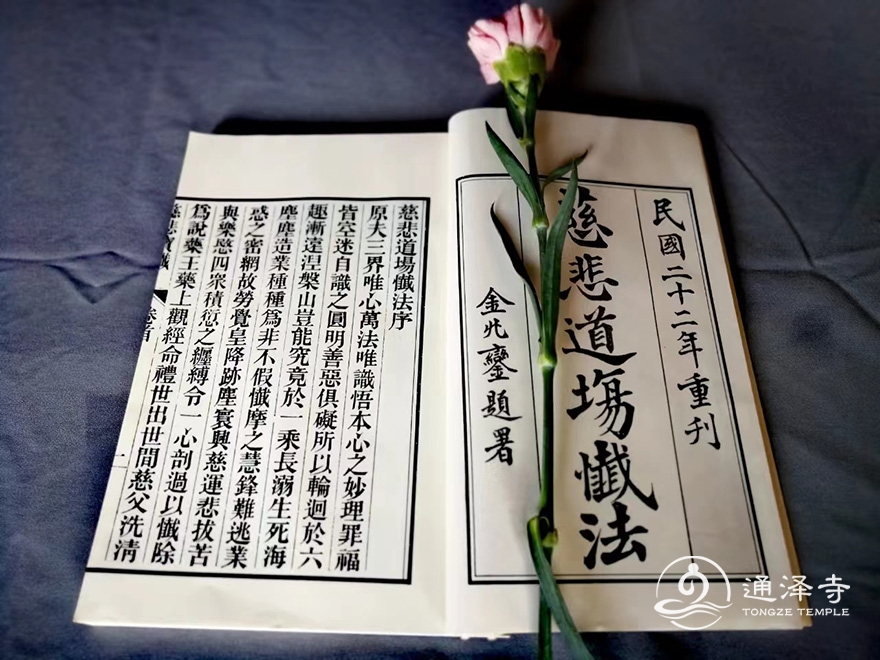 民國二十二年重刊
慈悲道場懺法
金兆鑾題署
慈悲道場懺法序
原夫三界唯心萬法唯識悟本心之妙理罪福
皆空迷自識之圓明善惡俱礙所以輪迴於六
趣漸遠涅槃山豈能究竟於一乘長溺生死海
塵塵造業種種為非不假懺摩之慧鋒難逃業
惑之密網故勞覺皇降跡塵寰興慈運悲拔苦
與藥愍四衆積愆之纏縛令一心剖過以懺除
爲說藥王藥上觀經命禮世出世間慈父洗清
慈悲寶懺 卷首
一
通泽寺
TONGZE TEMPLE